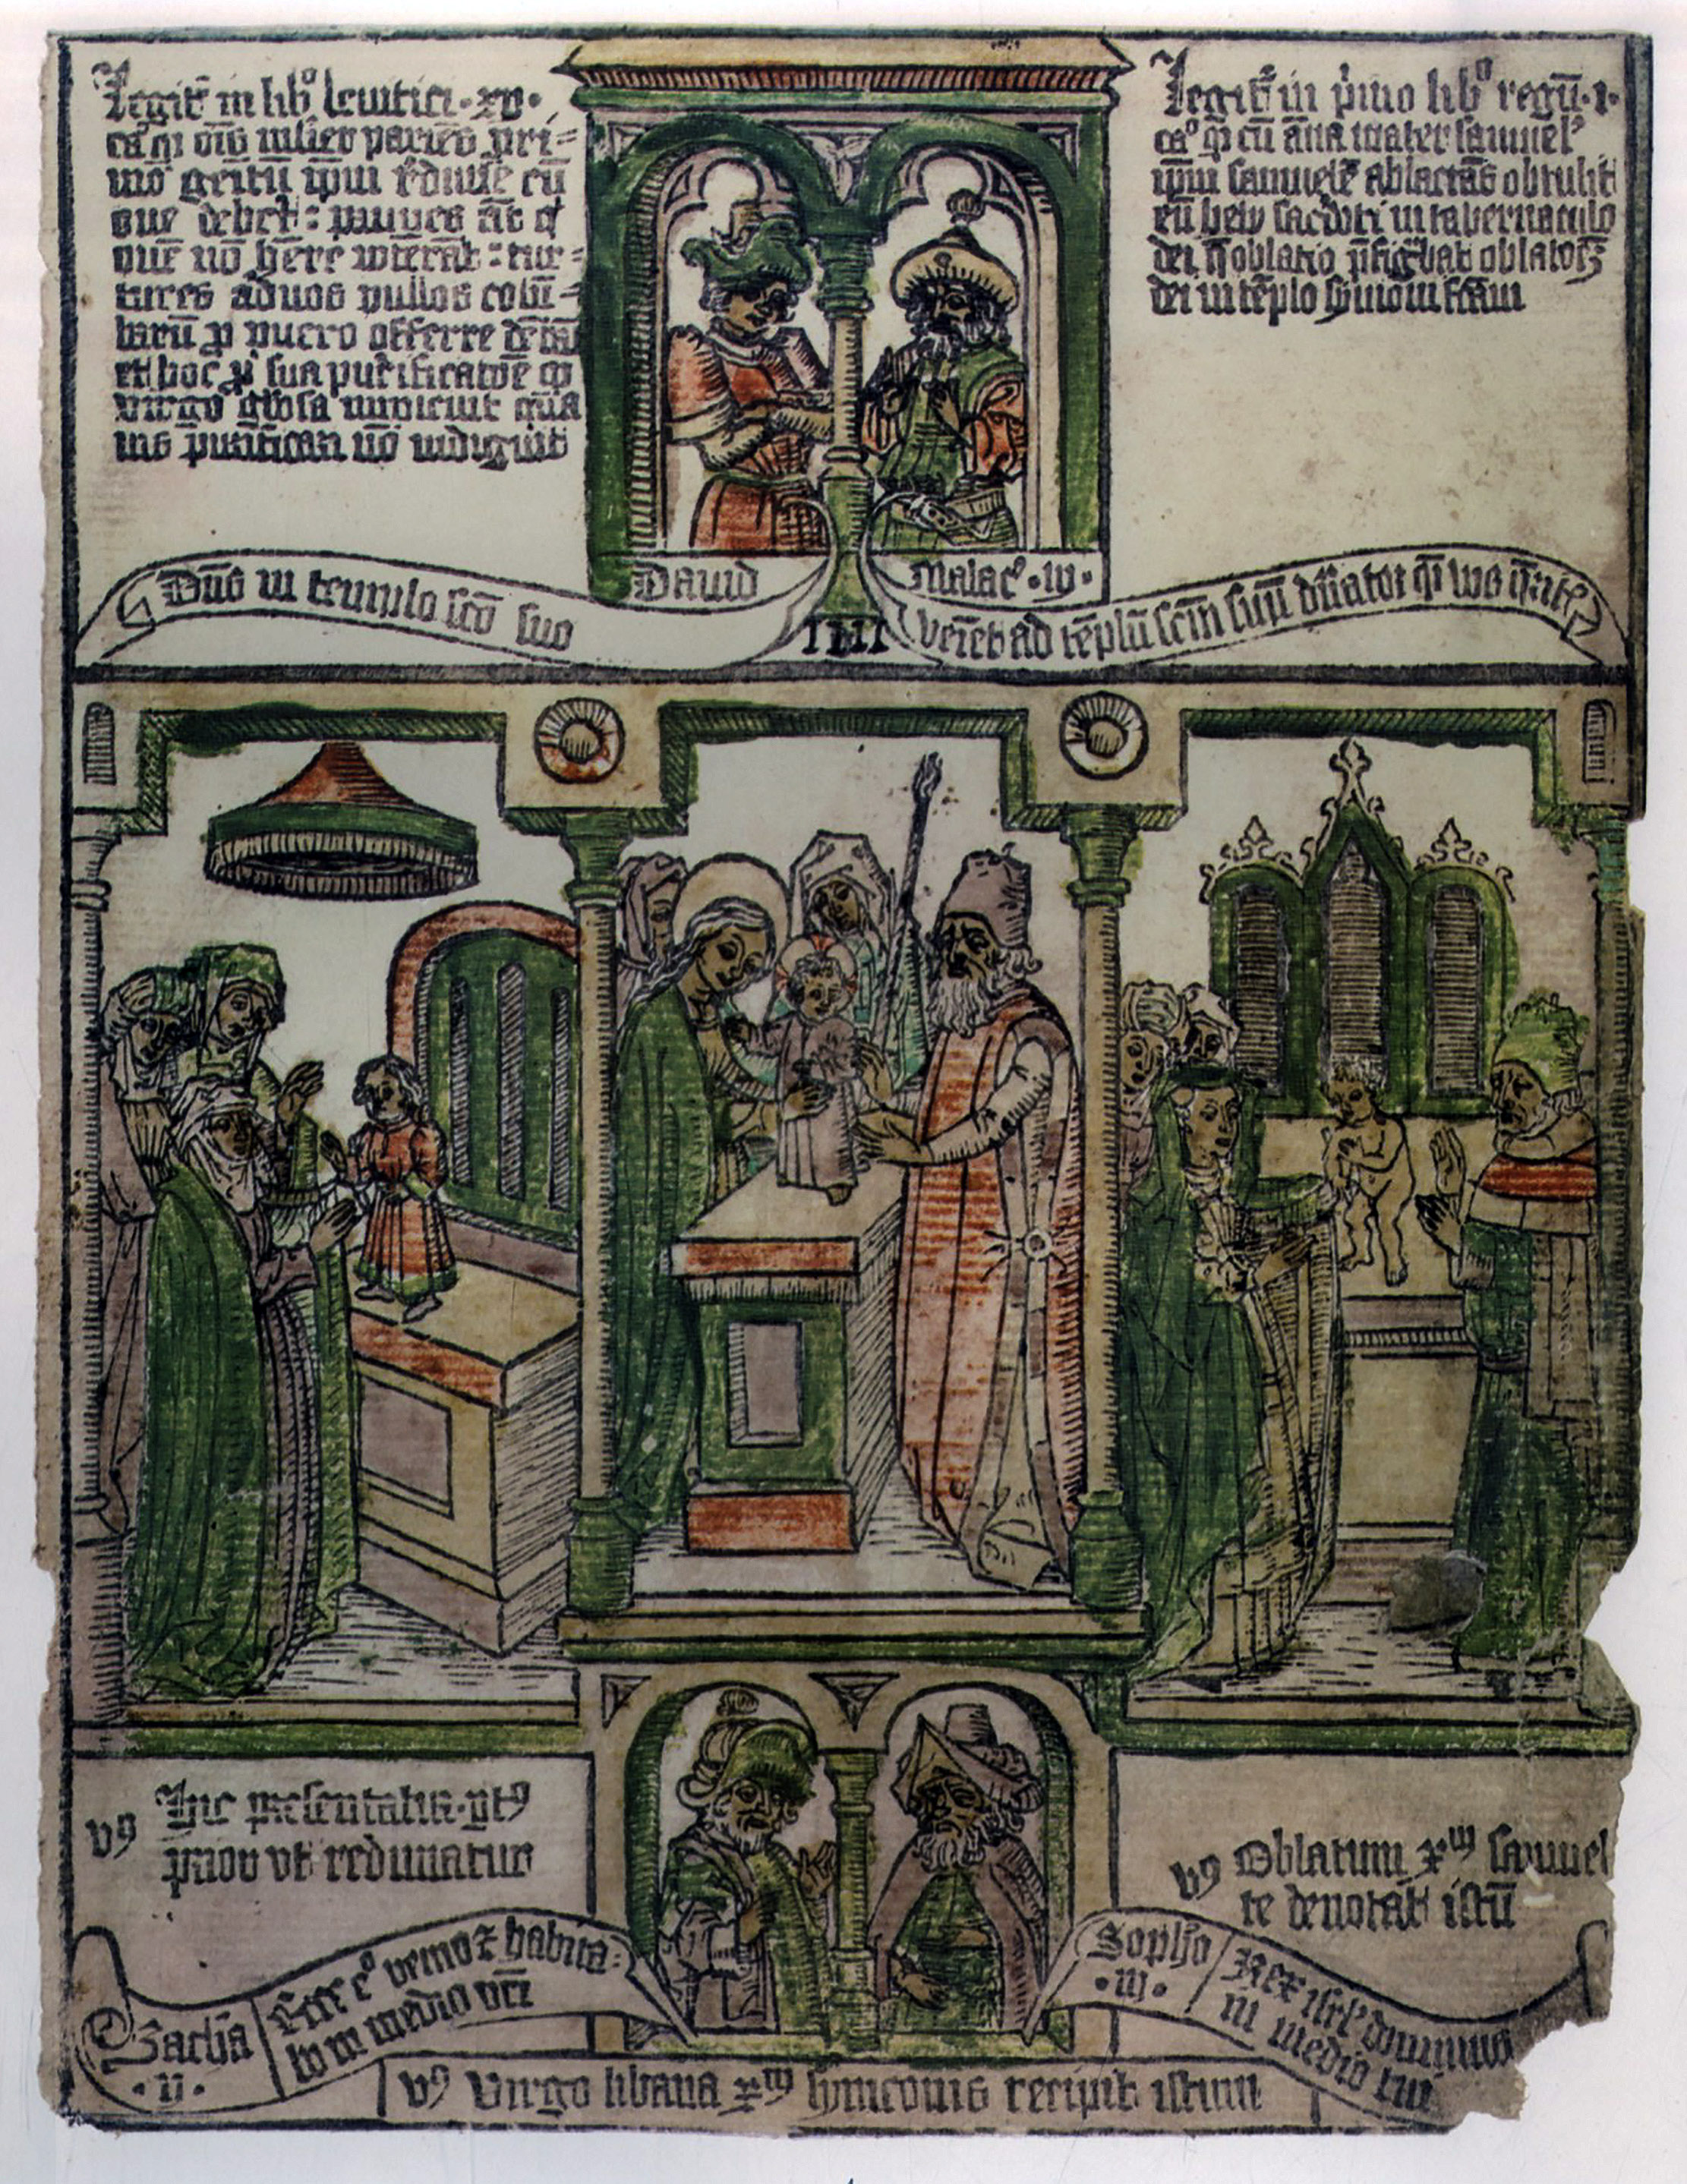 Legit̄ in lib° leuitici · xij ·
ca° q̄ oīs mulier pariēs pri=
mo genitū ipm redimē cū
oue debet : paupes at q
ouē nō hēre poterāt : tur=
tures aduos pullos colū=
barū p puero offerre debāt
et hoc p sua purificatōe
virgo glōsa quā
uis purificari nō indiguit
Legit̄ in p̄mo lib° regū · i ·
ca° q̄ cū āna mater samuel'
ipm samuelē ablactās obtulit
eū hely sacdoti in tabernaculo
dei q̄ oblatio p̄figbat oblatoēȝ
dei in tēplo symoni fcām
Dauid
Dn̄s in templo sc̄o suo
Malac° · iij ·
veīet ad tēplū sc̄m suū dn̄ator q̄ vos q̄rit
v9 Hic presentatur · pt9
prior vt redimatur
v9 Oblatum xm samuel
te denotat istū
Zacha
· ii ·
Ecce e° venio ⁊ habita=
bo in medio vr̄i
Sopho
· iij ·
Rex isrl' dominus
in medio tui
v9 Virgo libans xm symeonis recipit istum